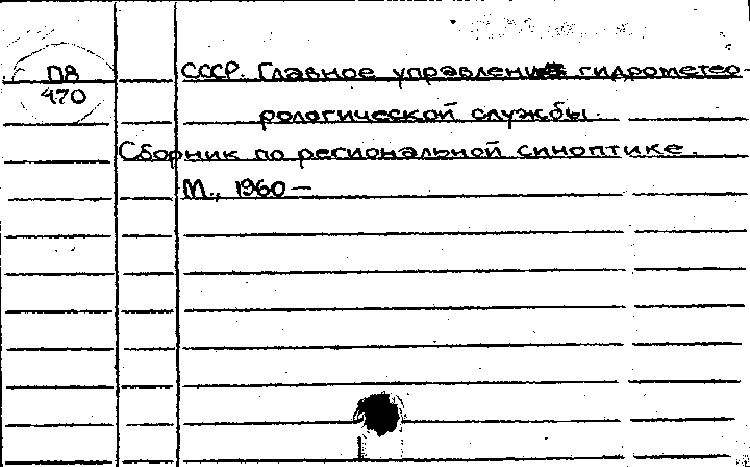 П8
470
СССР. Главное управление гидрометео-
рологической службы.
Сборник по региональной синоптике.
М., 1960 —